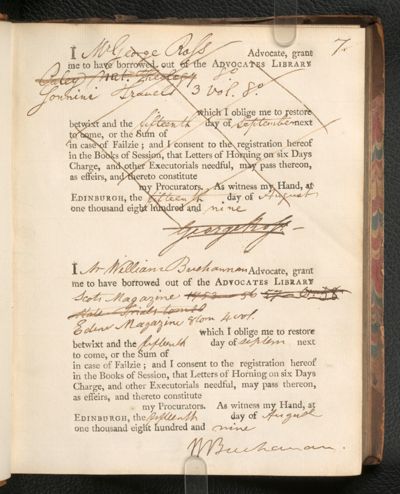 7.
I Mr George Ross Advocate, grant
me to have borrowed out of the ADVOCATES LIBRARY
Paley's Nat. Theology 8o
Sonnini Travels 3 vol. 8o
which I oblige me to restore
betwixt and the fifteenth day of September next
to come, or the Sum of
in case of Failzie; and I consent to the registration hereof
in the Books of Session, that Letters of Horning on six Days
Charge, and other Executorials needful, may pass thereon,
as effeirs, and thereto constitute
my Procurators. As witness my Hand, at
EDINBURGH, the fifteenth day of August
one thousand eight hundred and nine
George Ross
I Mr William Buchannan Advocate, grant
me to have borrowed out of the ADVOCATES LIBRARY
Scots Magazine
Edinr Magazine 4 vol.
which I oblige me to restore
betwixt and the fifteenth day of septem. next
to come, or the Sum of
in case of Failzie; and I consent to the registration hereof
in the Books of Session, that Letters of Horning on six Days
Charge, and other Executorials needful, may pass thereon,
as effeirs, and thereto constitute
my Procurators. As witness my Hand, at
EDINBURGH, the fifteenth day of August
one thousand eight hundred and nine
W Buchanan.